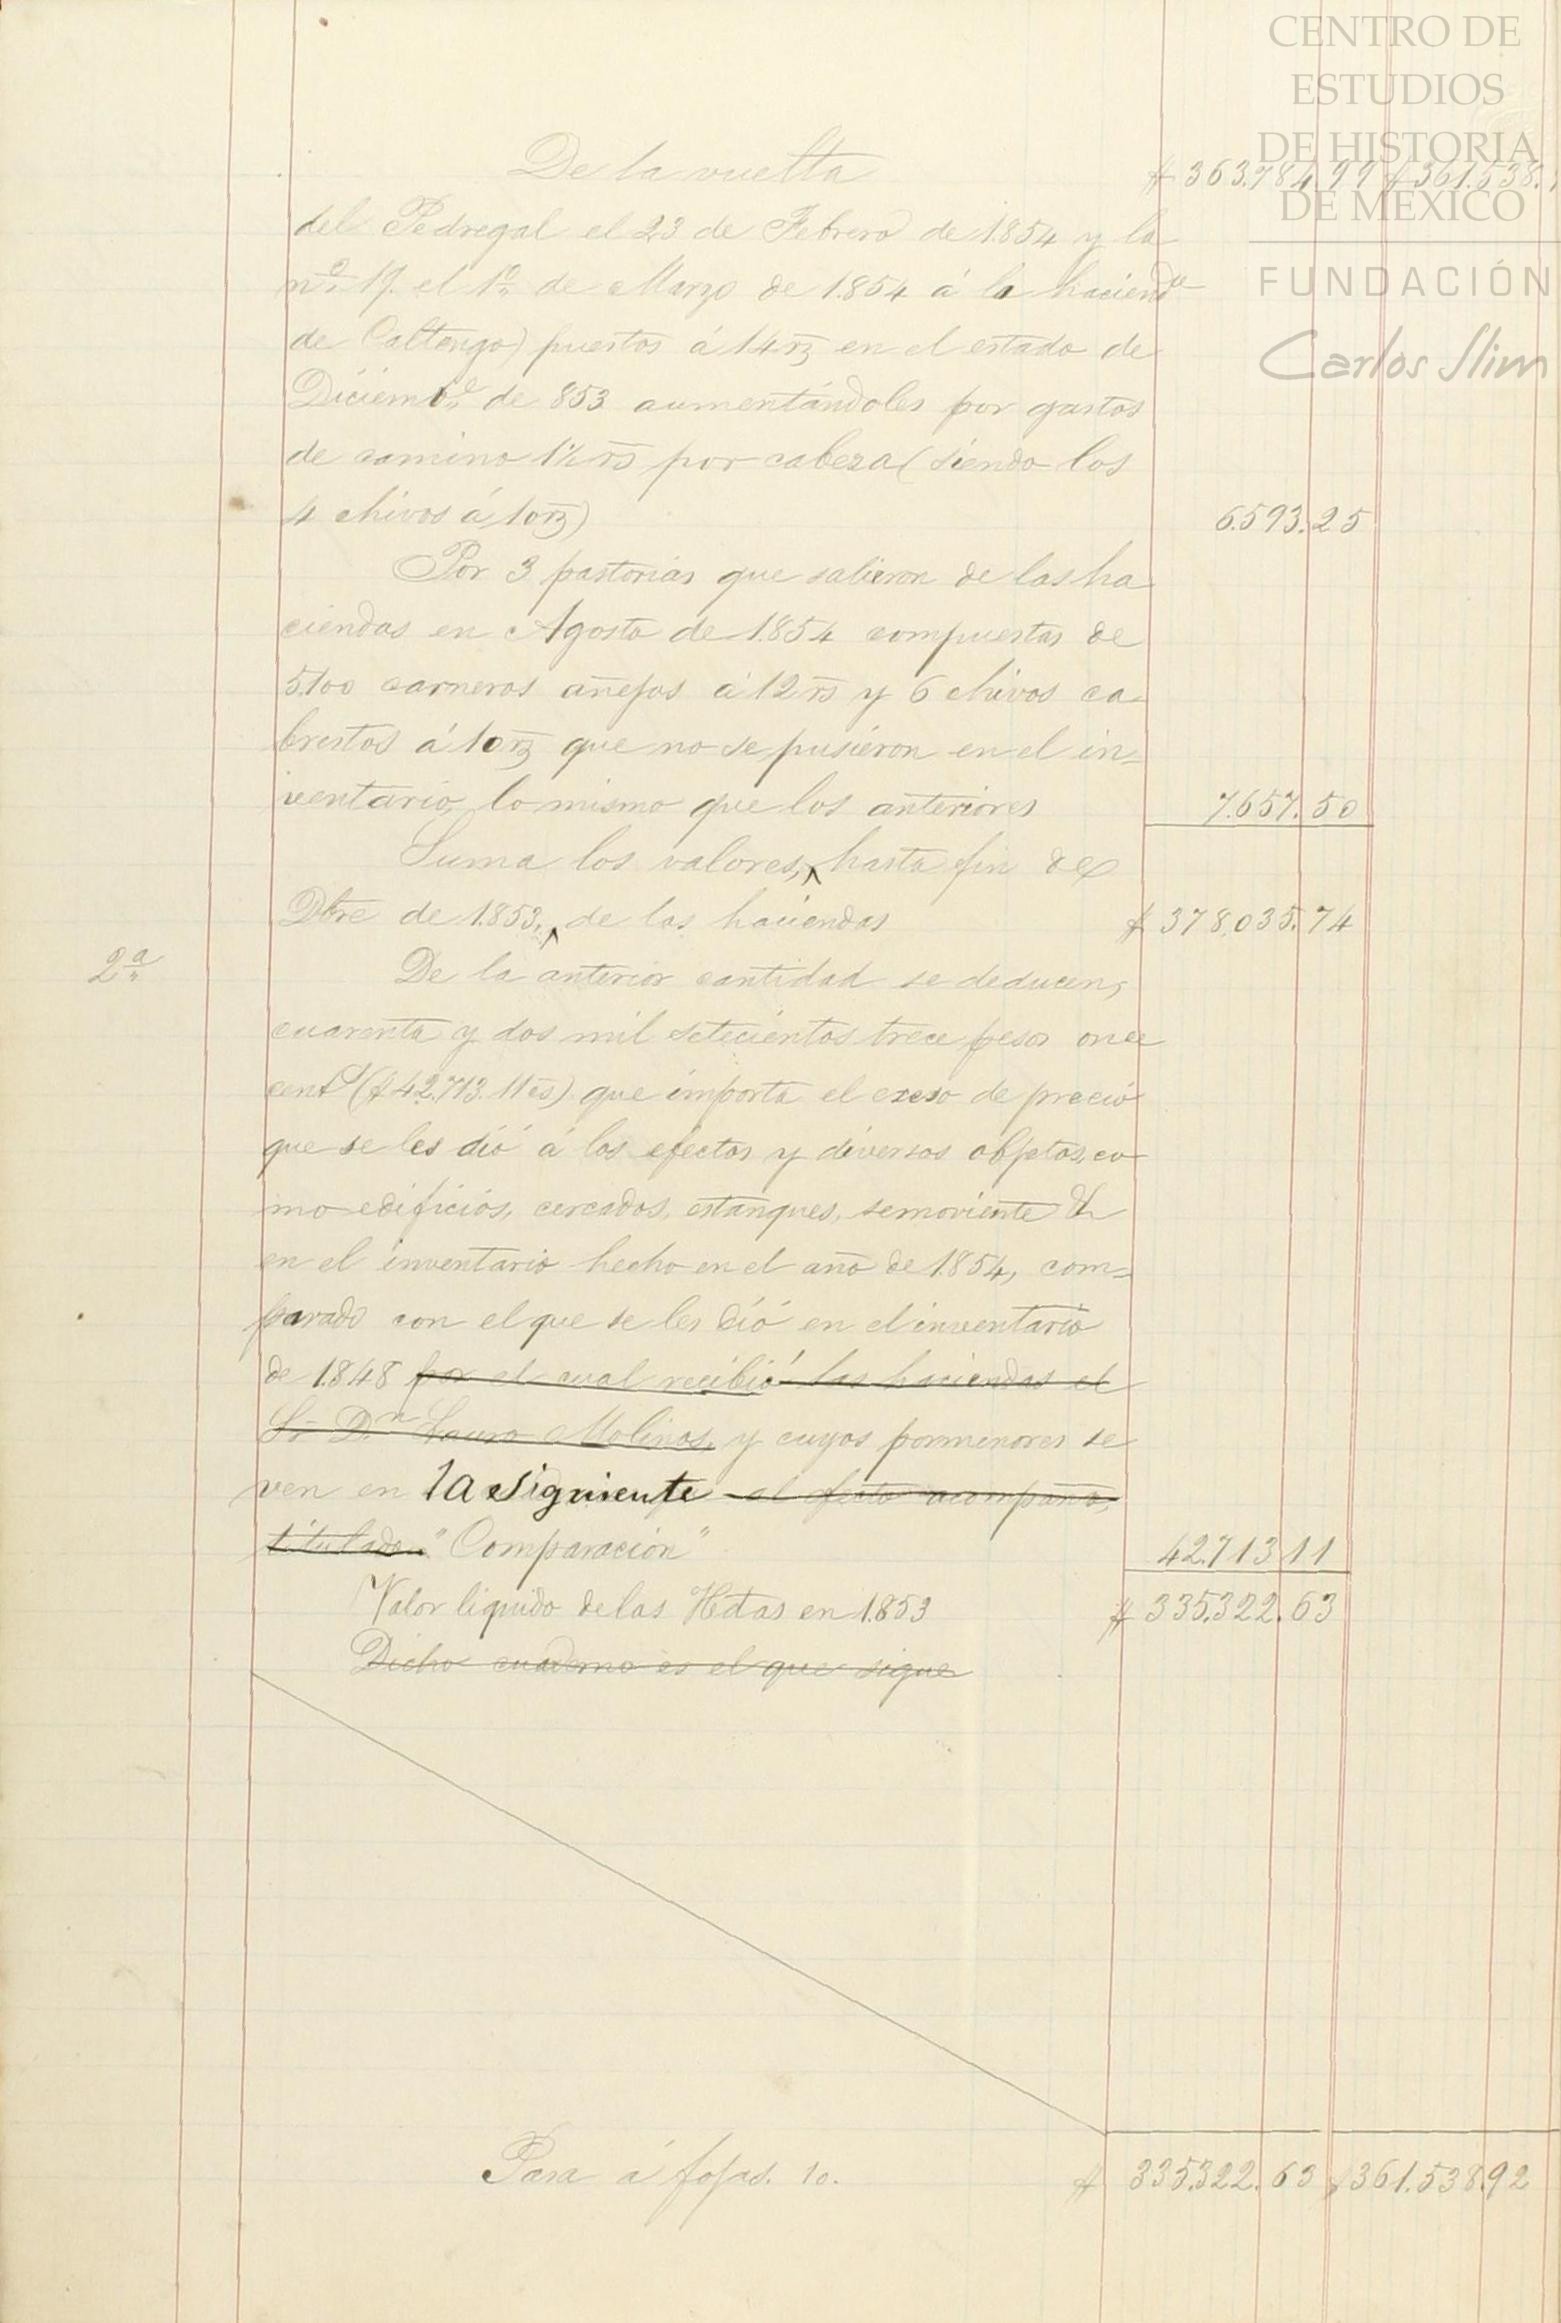 CENTRO DE
ESTUDIOS
DE HISTORIA
DE MÉXICO
FUNDACIÓN
Carlos Slim
De la vuelta $363.784,99 $361.538.
del Pedregal el 23 de Febrero de 1.854 y la
nº 17. el 1º de Marzo de 1.854 á la haciend
de Caltengo) puestos á 14 rs en el estado de
Diciembe de 853 aumentándoles por gastos
de camino 1½ rs por cabeza (siendo los
4 chivos á 10 rs) 6.593.25
Por 3 pastorias que salieron de las ha
ciendas en Agosto de 1.854 compuestas de
5.100 carneros añejos á 12 rs y 6 chivos ca-
brestos á 10 rs que no se pusieron en el in=
ventario, lo mismo que los anteriores 7.657.50
Suma los valores, hasta fin de
Dbre de 1.853, de las haciendas $378.035.74
2ª De la anterior cantidad se deducen,
cuarenta y dos mil setecientos trece pesos once
cents ($42.713.11 cs) que importa el exeso de precio
que se les dió á los efectos y diversos objetos, co-
mo edificios, cercados, estanques, semoviente &
en el inventario hecho en el año de 1.854, com=
parado con el que se les dió en el inventario
de 1.848 por el cual recibió las haciendas el
Sr. Dn Lauro Molinos, y cuyos pormenores se
ven en la siguiente el efecto acompaño,
titulado "Comparación" 42.713 11
Valor liquido de las Hdas en 1.853 $335.322.63
Dicho cuaderno es el que sigue
Pasa á fojas. 10. $335.322.63 $361.538.92